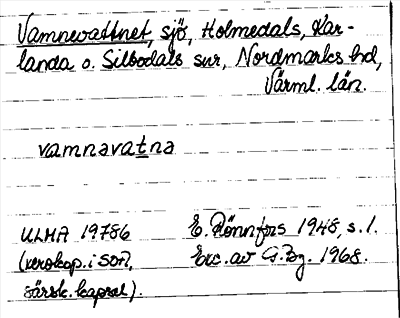 Vamnevattnet, sjö, Holmedals, Kar-
landa o. Silbodals snr, Nordmarks hd,
Värml. län.
vamnavatna
ULMA 19786 E. Rönnfors 1948, s. 1.
(xerokop. i SOA, Exc. av G. Bg. 1968.
särsk. kapsel).